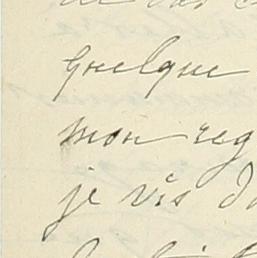 quelque
mon reg
je vis d